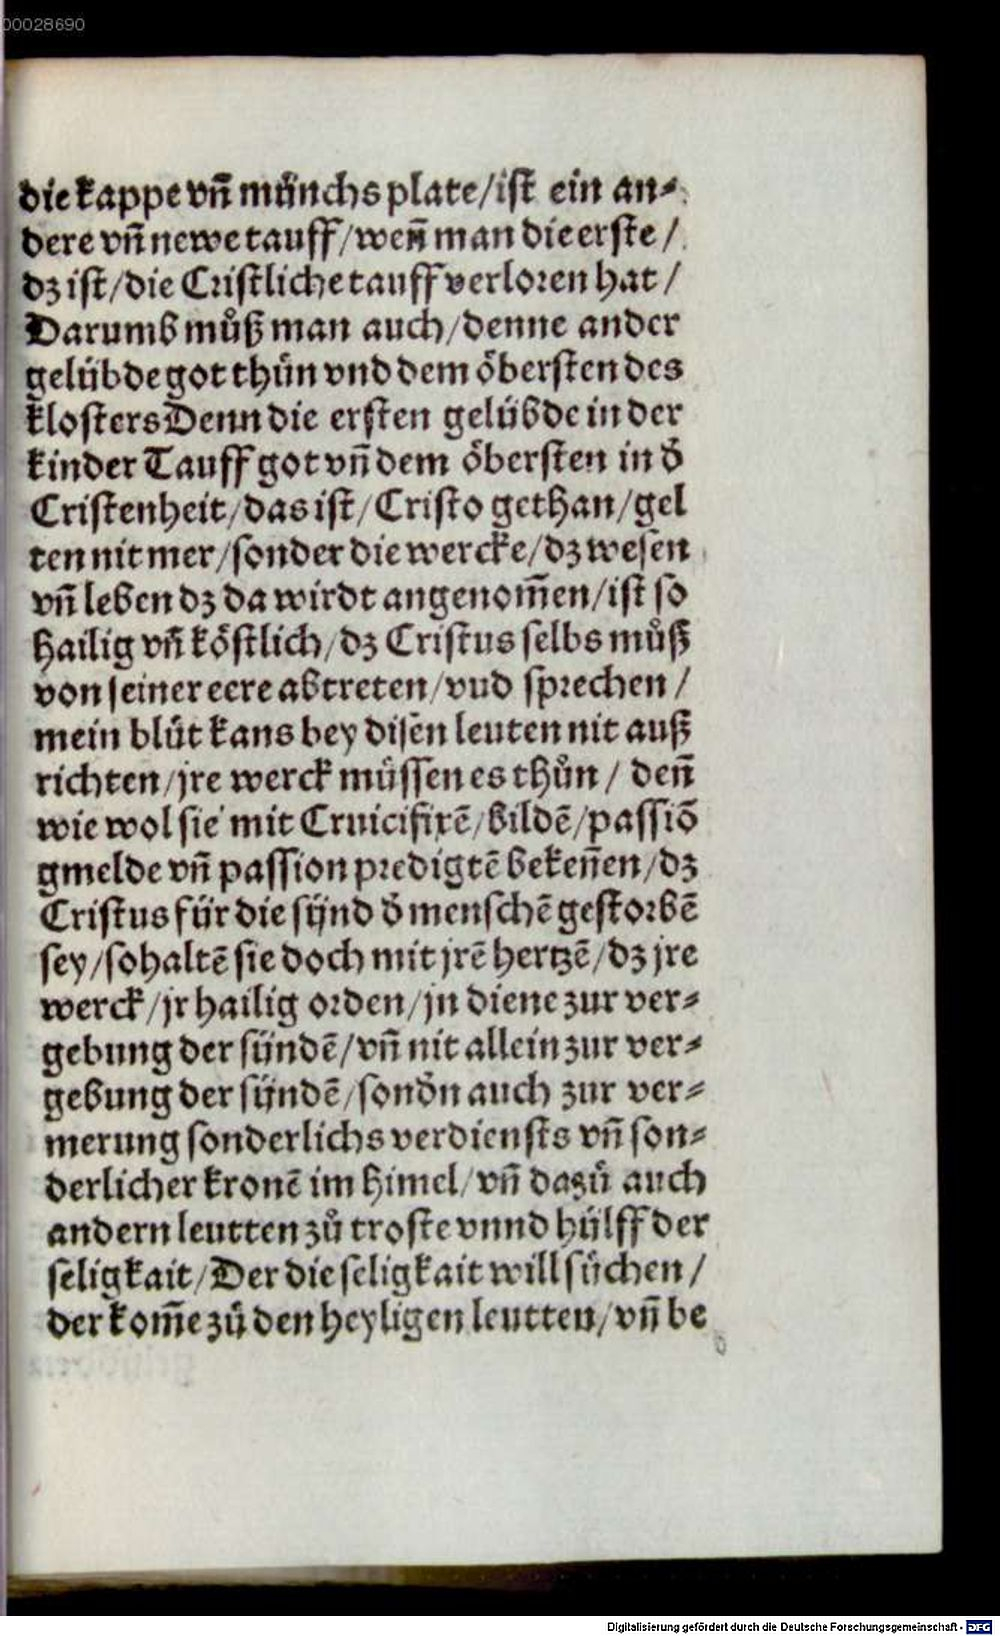 00028690
die kappe vñ münchs plate/ist ein an⸗
dere vñ newe tauff/weñ man die erste/
dz ist/die Cristliche tauff verloren hat/
Darumb můß man auch/denne ander
gelübde got thůn vnd dem öbersten des
klosters Denn die ersten gelübde in der
kinder Tauff got vñ dem öbersten in d̕
Cristenheit/das ist/Cristo gethan/gel
ten nit mer/sonder die wercke/dz wesen
vñ leben dz da wirdt angenom̄en/ist so
hailig vñ köstlich/dz Cristus selbs můß
von seiner eere abtreten/vud sprechen/
mein blůt kans bey disen leuten nit auß
richten/jre werck müssen es thůn/ deñ
wie wol sie mit Cruicifixē/bildē/passiō
gmelde vñ passion predigtē bekeñen/dz
Cristus für die sünd d̕ menschē gestorbē
sey/so haltē sie doch mit jrē hertzē/dz jre
werck/jr hailig orden/jn diene zur ver⸗
gebung der sündē/vñ nit allein zur ver⸗
gebung der sündē/sond̕n auch zur ver⸗
merung sonderlichs verdiensts vñ son⸗
derlicher kronē im himel/vñ dazů auch
andern leutten zů troste vnnd hülff der
seligkait/Der die seligkait will sůchen/
der kom̄e zů den heyligen leutten/vñ be
Digitalisierung gefördert durch die Deutsche Forschungsgemeinschaft - DFG